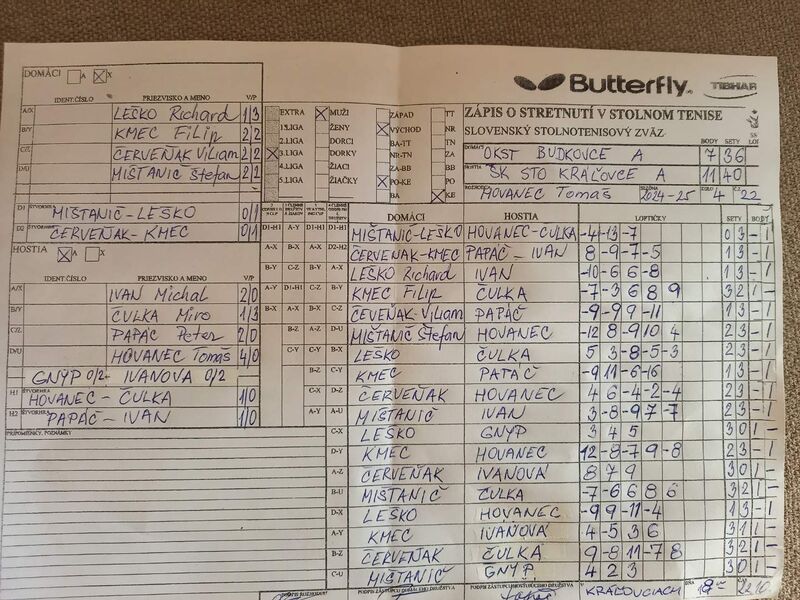 DOMÁCI A X
IDENT.ČÍSLO PRIEZVISKO A MENO V/P
A/X LEŠKO Richard 1/3
B/Y KMEC Filip 2/2
C/Z ČERVEŇAK Viliam 2/2
D/U MIŠTANIČ Štefan 2/2
D1 ŠTVORHRA MIŠTANIČ-LEŠKO 0/1
D2 ŠTVORHRA ČERVEŇAK-KMEC 0/1
HOSTIA A X
IDENT.ČÍSLO PRIEZVISKO A MENO V/P
A/X IVAN Michal 2/0
B/Y ČULKA Miro 1/3
C/Z PAPÁČ Peter 2/0
D/U HOVANEC Tomáš 4/0
GNYP 0/2 IVANOVA 0/2
H1 ŠTVORHRA HOVANEC - ČULKA 1/0
H2 ŠTVORHRA PAPÁČ - IVAN 1/0
PRIPOMIENKY, POZNÁMKY
EXTRA MUŽI ZÁPAD TT
1.LIGA ŽENY VÝCHOD NR
2.LIGA DORCI BA-TT TN
3.LIGA DORKY NR-TN ZA
4.LIGA ŽIACI ZA-BB BB
5.LIGA ŽIAČKY PO-KE PO
BA KE
Butterfly TIBHAR
ZÁPIS O STRETNUTÍ V STOLNOM TENISE
SLOVENSKÝ STOLNOTENISOVÝ ZVÄZ BODY SETY
DOMÁCI OKST BUDKOVCE A 7 36
HOSTIA ŠK STO KRÁĽOVCE A 11 40
ROZHODCA HOVANEC Tomáš SEZÓNA 2024-25 KOLO 4 Č. 22
DOMÁCI HOSTIA LOPTIČKY SETY BODY
D1-H1 MIŠTANIČ-LEŠKO HOVANEC-ČULKA -4 -13 -7 0 3 - 1
D2-H2 ČERVEŇAK-KMEC PAPÁČ - IVAN 8 -9 -7 -5 1 3 - 1
A-X LEŠKO Richard IVAN -10 -6 6 -8 1 3 - 1
B-Y KMEC Filip ČULKA -7 -3 6 8 9 3 2 1 -
C-Z ČEVEŇAK-Viliam PAPÁČ -9 -9 9 -11 1 3 - 1
D-U MIŠTANIČ Štefan HOVANEC -12 8 -9 10 4 2 3 - 1
A-Y LEŠKO ČULKA 5 3 -8 -5 -3 2 3 - 1
B-Z KMEC PAPÁČ -9 11 -6 -16 1 3 - 1
C-U ČERVEŇAK HOVANEC 4 6 -4 -2 -4 2 3 - 1
D-X MIŠTANIČ IVAN 3 -8 -9 7 -7 2 3 - 1
C-X LEŠKO GNYP 3 4 5 3 0 1 -
D-Y KMEC HOVANEC 12 -8 -7 9 -8 2 3 - 1
A-Z ČERVEŇAK IVANOVÁ 8 7 9 3 0 1 -
B-U MIŠTANIČ ČULKA -7 6 6 8 6 3 2 1 -
D-X LEŠKO HOVANEC -9 9 -11 -4 1 3 - 1
A-Y KMEC IVAŇOVA 4 -5 3 6 3 1 1 -
B-Z ČERVEŇAK ČULKA 9 -8 11 -7 8 3 2 1 -
C-U MIŠTANIČ GNYP 4 2 3 3 0 1 -
PODPIS ROZHODCU PODPIS ZÁSTUPCU DOMÁCEHO DRUŽSTVA PODPIS ZÁSTUPCU HOSŤUJÚCEHO DRUŽSTVA V KRÁĽOVCIACH DŇA